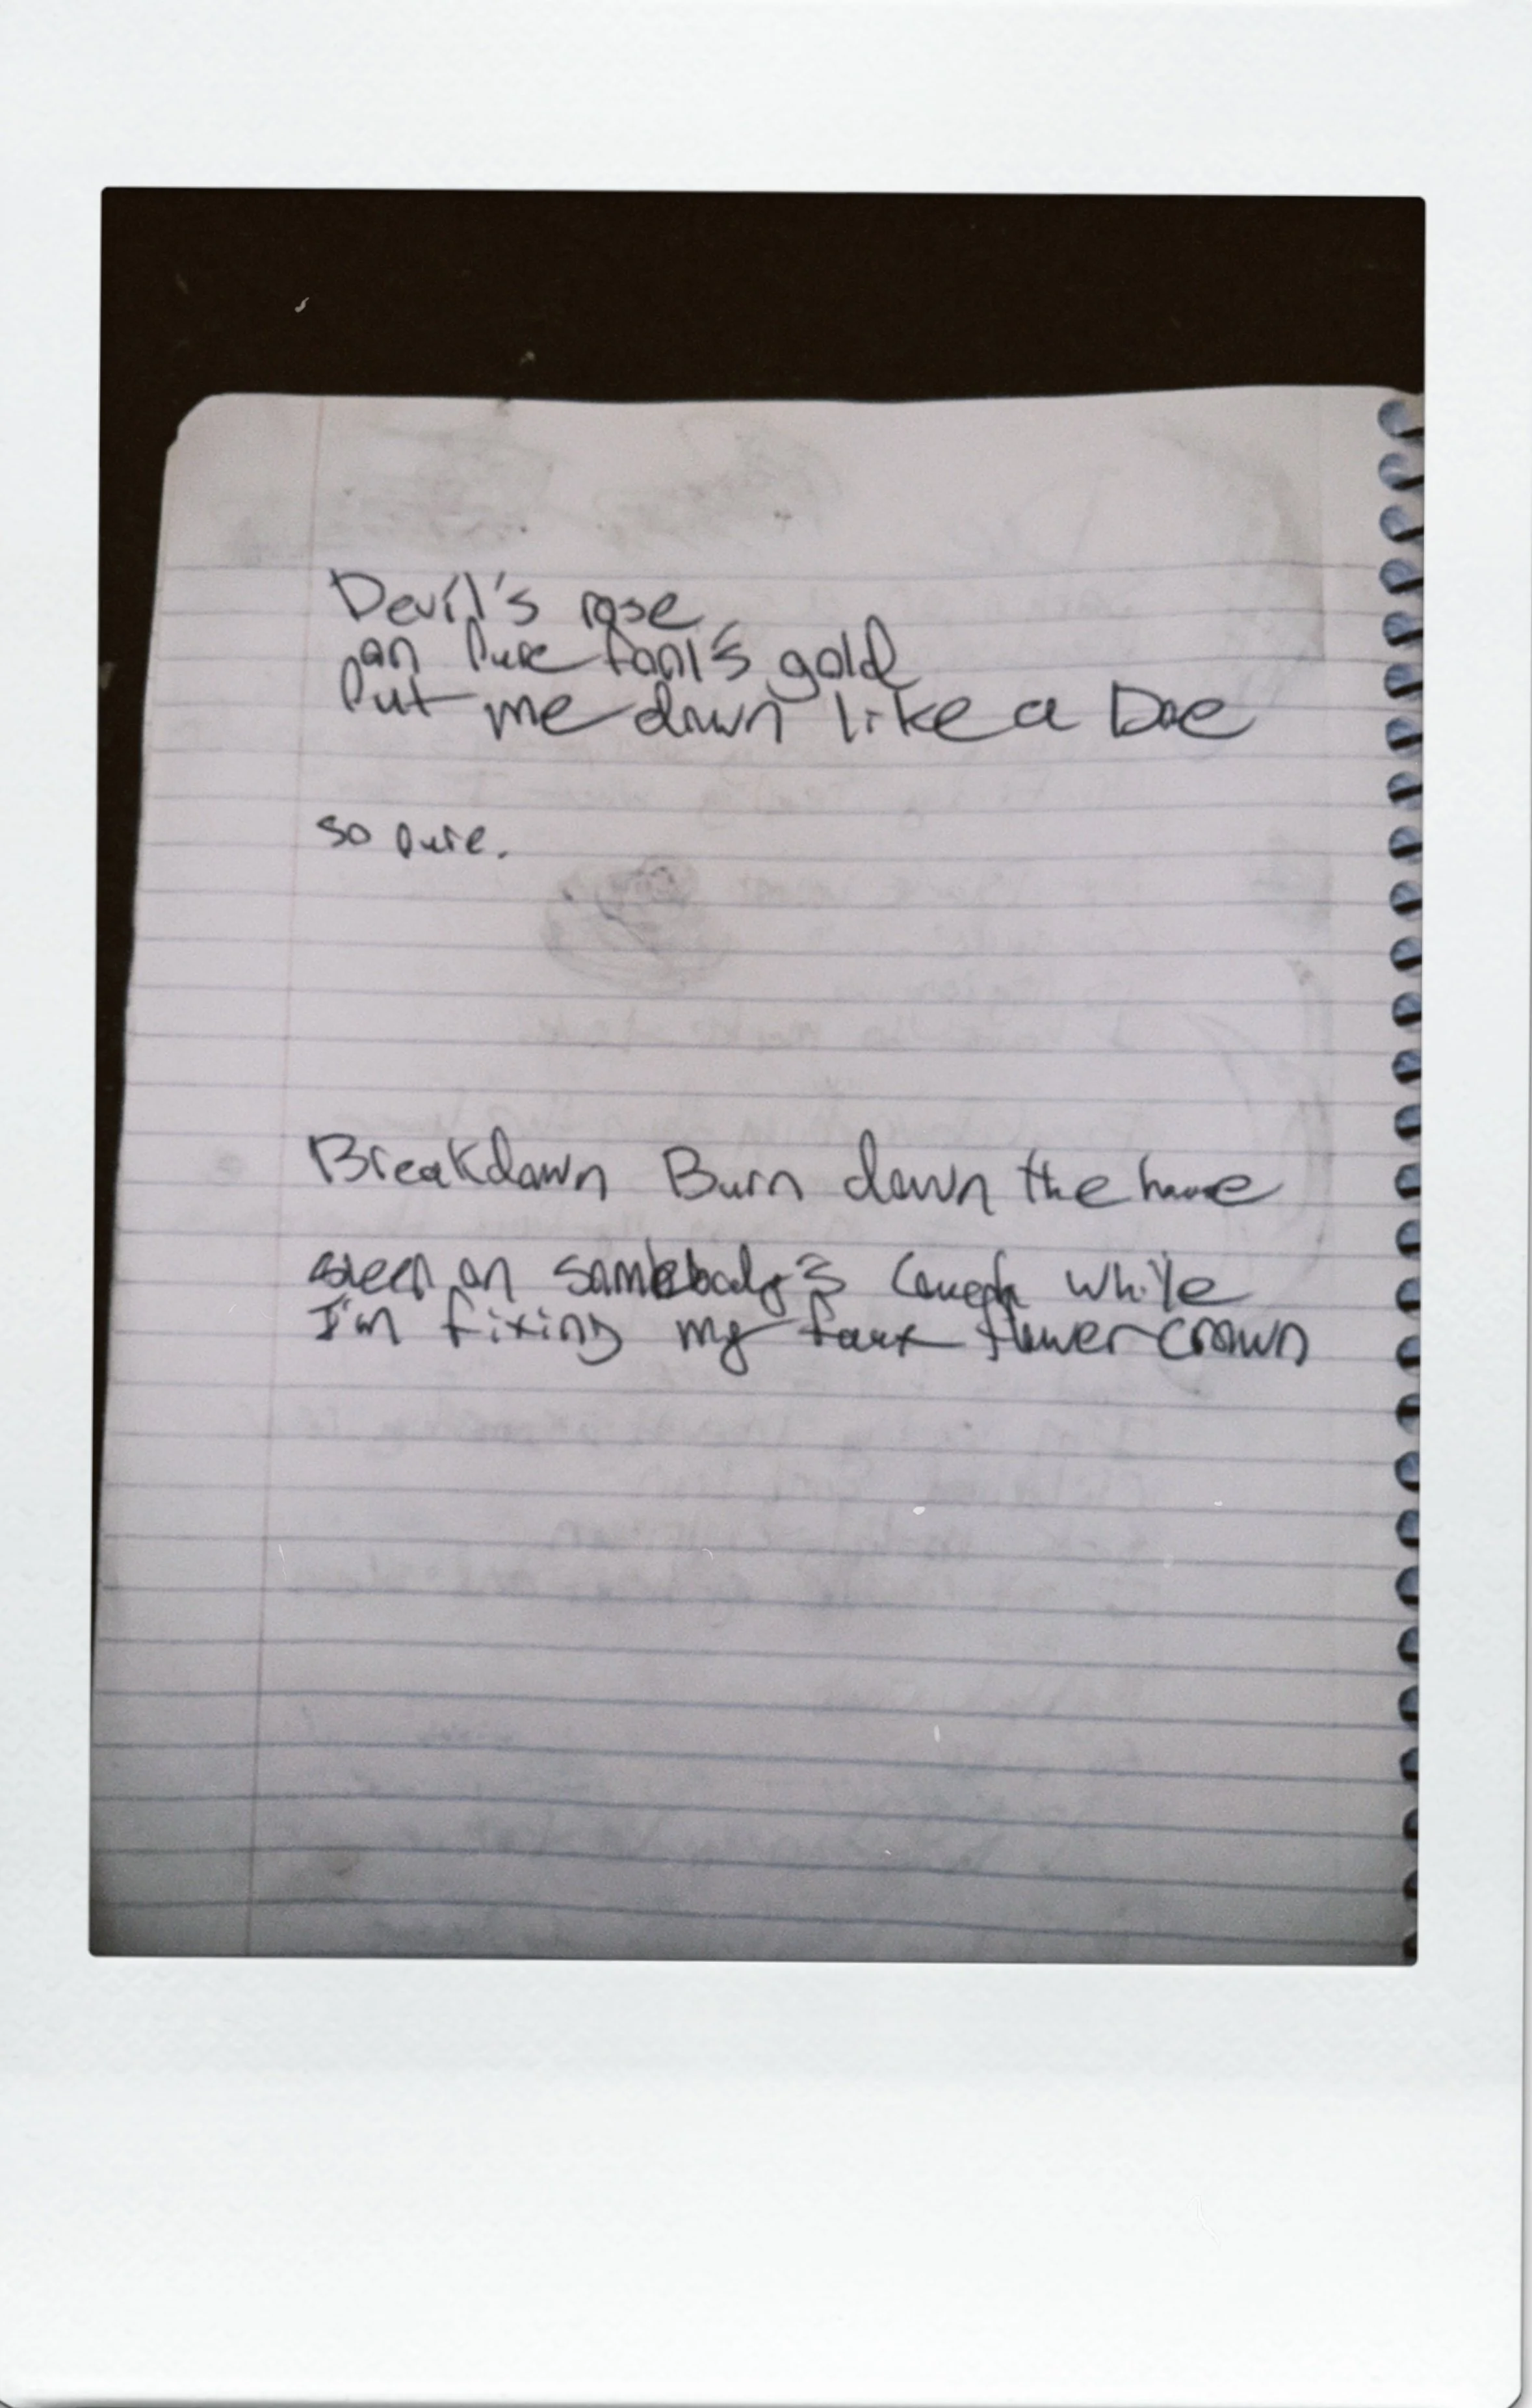 Devil's rose
on pure fool's gold
Put me down like a Doe
so pure.
Breakdown Burn down the house
sleep on somebody's couch while
I'm fixing my faux flower crown